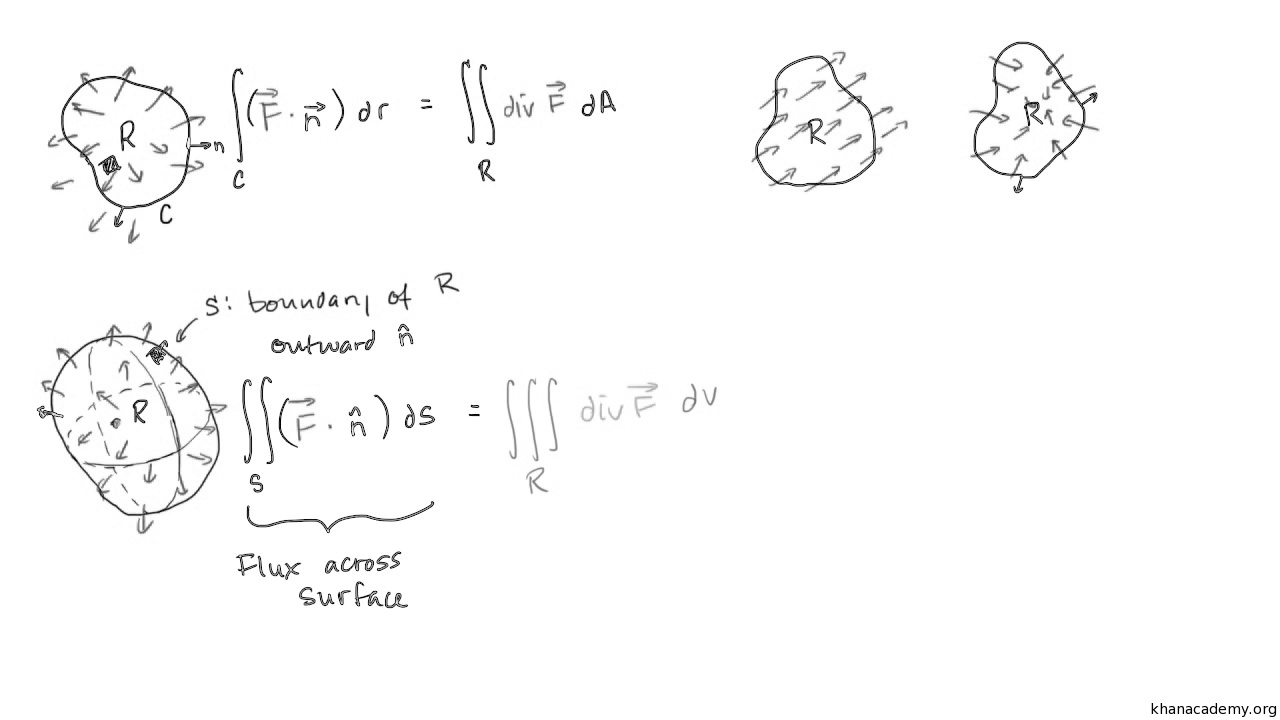 R
n
C
∫ (F⃗ · n⃗) dr = ∬ div F⃗ dA
C
R
R
R
S: boundary of R
outward n̂
R
∬ (F⃗ · n̂) dS = ∭ div F⃗ dv
S
R
Flux across
surface
khanacademy.org